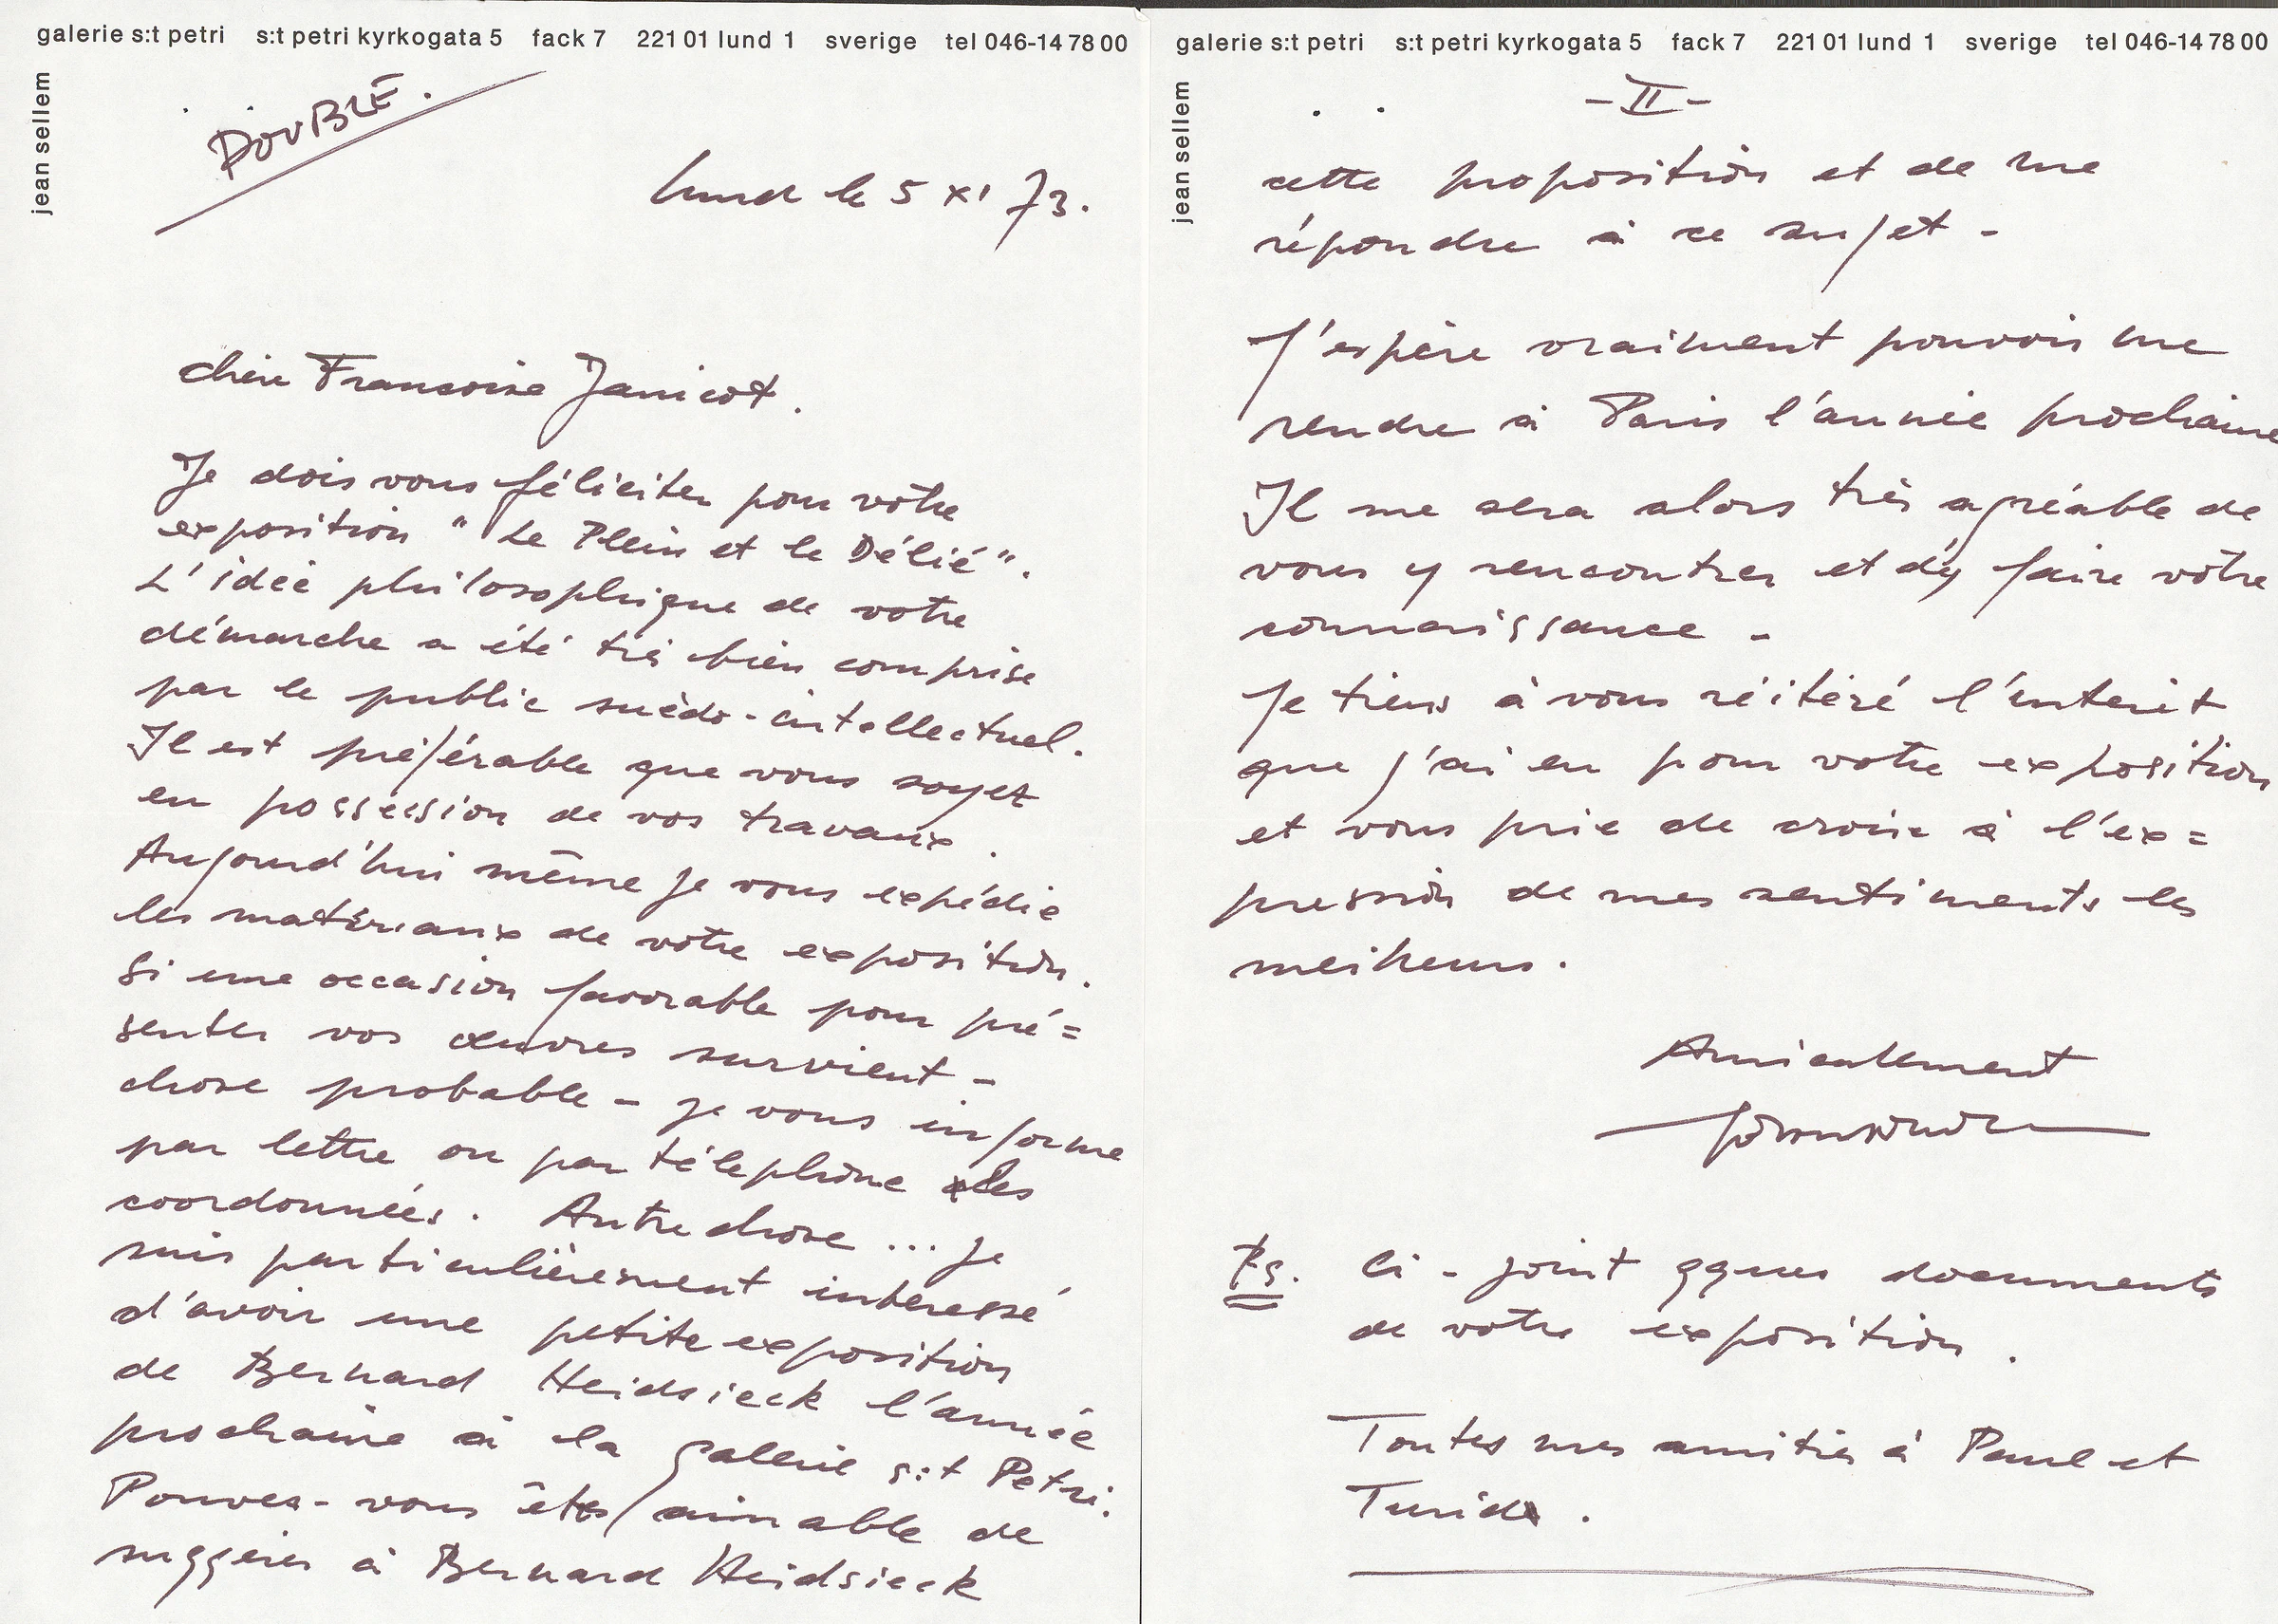 galerie s:t petri s:t petri kyrkogata 5 fack 7 221 01 lund 1 sverige tel 046-14 78 00
jean sellem
DOUBLE.
Lund le 5 XI 73.
chère Francoise Janicot.
Je dois vous féliciter pour votre
exposition "Le Plein et le Délié".
L'ideé philosophique de votre
démarche a été très bien comprise
par le public suédo-intellectuel.
Il est préférable que vous soyez
en possession de vos travaux.
Aujourd'hui même je vous expédie
les matériaux de votre exposition.
Si une occasion favorable pour pré=
senter vos œuvres survient -
chose probable - je vous informe
par lettre ou par téléphone les
coordonnées. Autre chose ... je
suis particulièrement intéressé
d'avoir une petite exposition
de Bernard Heidsieck l'année
prochaine à la galerie s:t Petri.
Pouvez-vous être aimable de
suggérer à Bernard Heidsieck
galerie s:t petri s:t petri kyrkogata 5 fack 7 221 01 lund 1 sverige tel 046-14 78 00
jean sellem
-II-
cette proposition et de me
répondre à ce sujet -
J'espère vraiment pouvoir me
rendre à Paris l'année prochaine
Il me sera alors très agréable de
vous y rencontrer et d'y faire votre
connaissance -
Je tiens à vous réitéré l'interêt
que j'ai eu pour votre exposition
et vous prie de croire à l'ex=
pression de mes sentiments les
meilleurs.
Amicalement
Ps. Ci-joint qques documents
de votre exposition.
Toutes mes amitiés à Paul et
Turid.